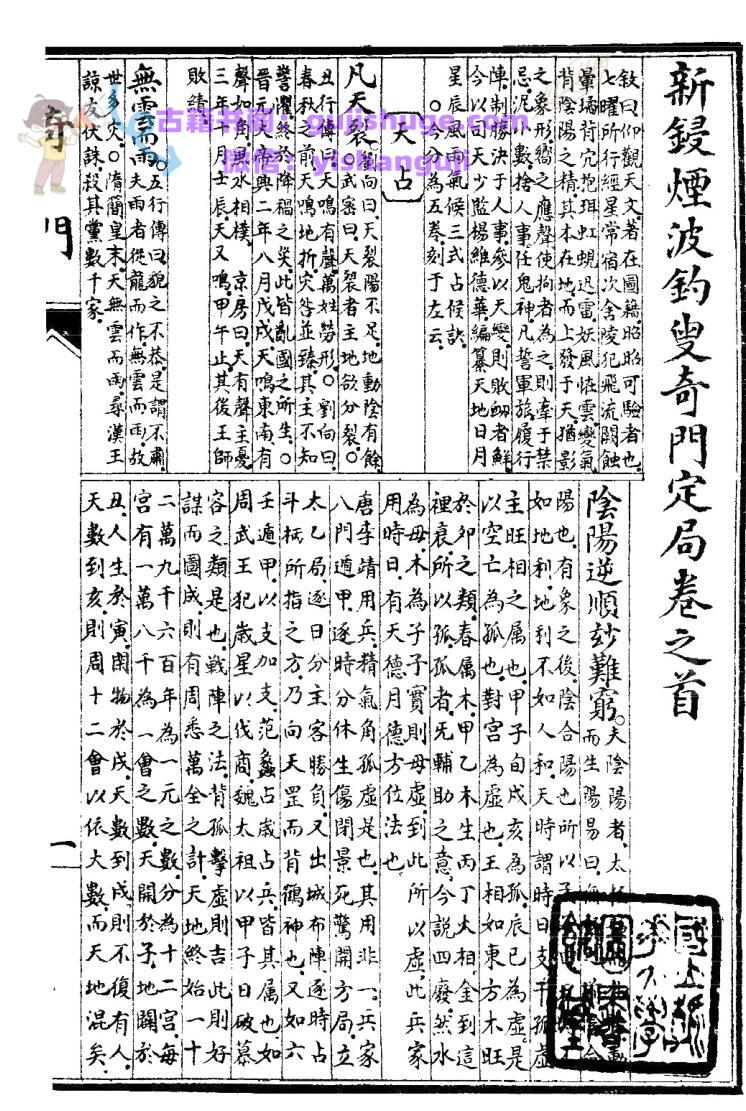 新鋟煙波釣叟奇門定局卷之首
敘曰仰觀天文著在圖籍昭昭可驗者也
七曜所行經星常宿次舍陵犯飛流鬪蝕
暈珥背穴抱珥虹蜺迅雷妖風怪雲變氣
背陰陽之精其本在地而上發于天猶影
之象形響之應聲使拘者為之則牽于禁
忌泥小數捨人事任鬼神凡誓軍旅履行
陣制勝決于人事參以天變則敗衂者鮮
今以司天少監楊維德華編纂天地日月
星辰風雨氣候三式占候訣
○今分為五卷刻于左云
天占
凡天裂劉向曰天裂陽不足地動陰有餘
○武密曰天裂者主地欲分裂○
丑行傳曰天鳴有聲萬姓勞形○劉向曰
春秋之前天鳴地折灾咎並臻其主不知
警懼終於降禍之災此皆亂國之所生○
晉元帝帝興二年八月戊戌天鳴東南有
聲如角風水相樸 京房曰天有聲主憂
三年十月壬辰天又鳴甲午止其後王師
敗績
無雲而雨五行傳曰貌之不恭是謂不肅
夫雨者從龍而作無雲而雨故
世多灾○隋簡皇末天無雲而雨尋漢王
諒友伏誅殺其黨數千家
陰陽逆順玅難窮夫陰陽者太
而生陽易曰
陽也有象之後陰合陽也所以
如地利地利不如人和天時謂時日支干孤虛
主旺相之属也甲子旬戌亥為孤辰巳為虛是
以空亡為孤也對宮為虛也王相如東方木旺
於卯之類春属木甲乙木生丙丁火相金到這
裡衰所以孤孤者无輔助之意今説四廢然水
為母木為子子實則母虛到此所以虛此兵家
用時日有天德月德方位法也
唐李靖用兵精氣角孤虛是也其用非一兵家
八門遁甲逐時分休生傷閉景死驚開方局立
太乙局逐日分主客勝負又出城布陣逐時占
斗柄所指之方乃向天罡而背鶴神也又如六
壬遁甲以支加支范蠡占歲占兵皆其属也如
周武王犯歲星以伐商魏太祖以甲子日破慕
容之類是也戰陣之法背孤擊虛則吉此則好
謀而圖成則有周悉萬全之計天地終始一十
二萬九千六百年為一元之數分為十二宮每
宮有一萬八千為一會之數天開於子地闢於
丑人生於寅閉物於戌天數到戌則不復有人
天數到亥則周十二會以依大數而天地混矣
奇門
一
古籍书阁：gujishuge.com
微信：yishanguji